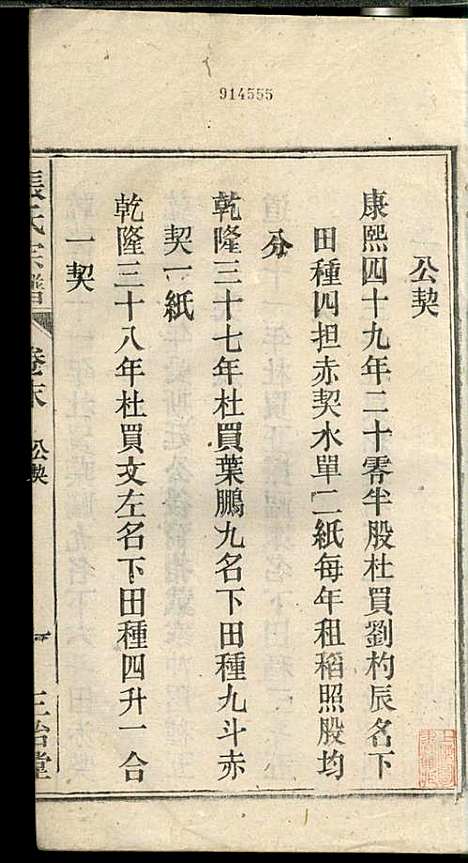 914555
公契
康熙四十九年二十零半股杜買劉杓辰名下
田種四担赤契水單二紙每年租稻照股均
分
乾隆三十七年杜買葉鵬九名下田種九斗赤
契一紙
乾隆三十八年杜買文左名下田種四升一合
一契
張氏宗譜
卷末
公契
一
三治堂